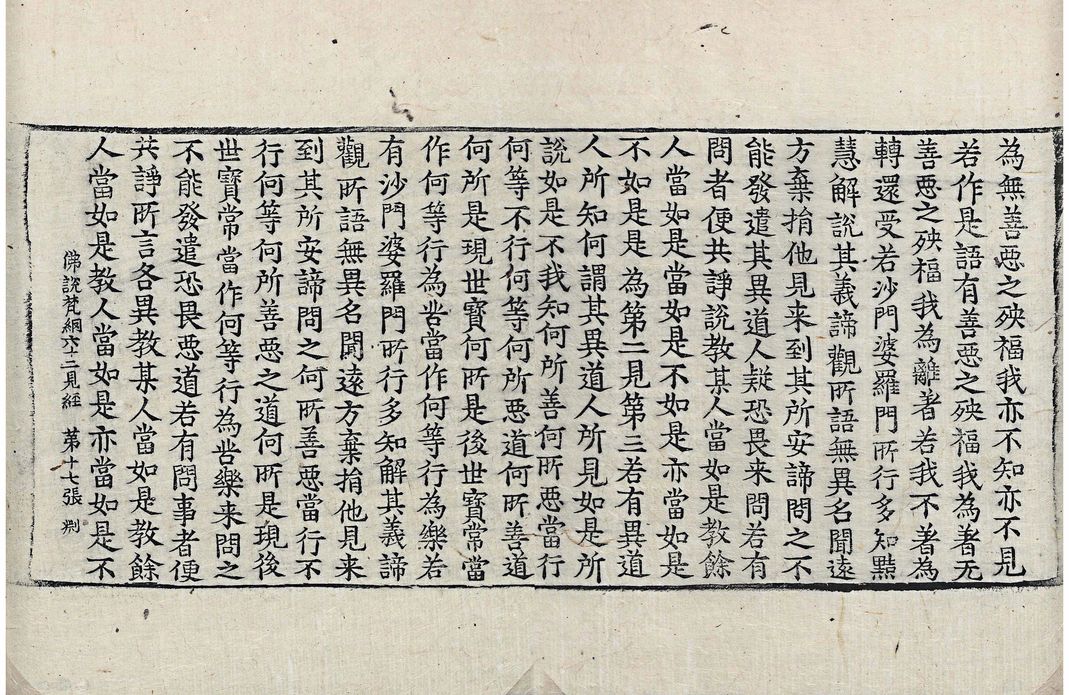 為無善惡之殃福我亦不知亦不見
若作是語有善惡之殃福我為著无
善惡之殃福我為離著若我不著為
轉還受若沙門婆羅門所行多知黠
慧解說其義諦觀所語無異名聞遠
方棄捐他見来到其所安諦問之不
能發遣其異道人疑恐畏来問若有
問者便共諍說教某人當如是教餘
人當如是當如是不如是亦當如是
不如是是為第二見第三若有異道
人所知何謂其異道人所見如是所
說如是不我知何所善何所惡當行
何等不行何等何所惡道何所善道
何所是現世寶何所是後世寶常當
作何等行為苦當作何等行為樂若
有沙門婆羅門所行多知解其義諦
觀所語無異名聞遠方棄捐他見来
到其所安諦問之何所善惡當行不
行何等何所善惡之道何所是現後
世寶常當作何等行為苦樂来問之
不能發遣恐畏惡道若有問事者便
共諍所言各異教某人當如是教餘
人當如是教人當如是亦當如是不
佛說梵網六十二見經 第十七張 剿